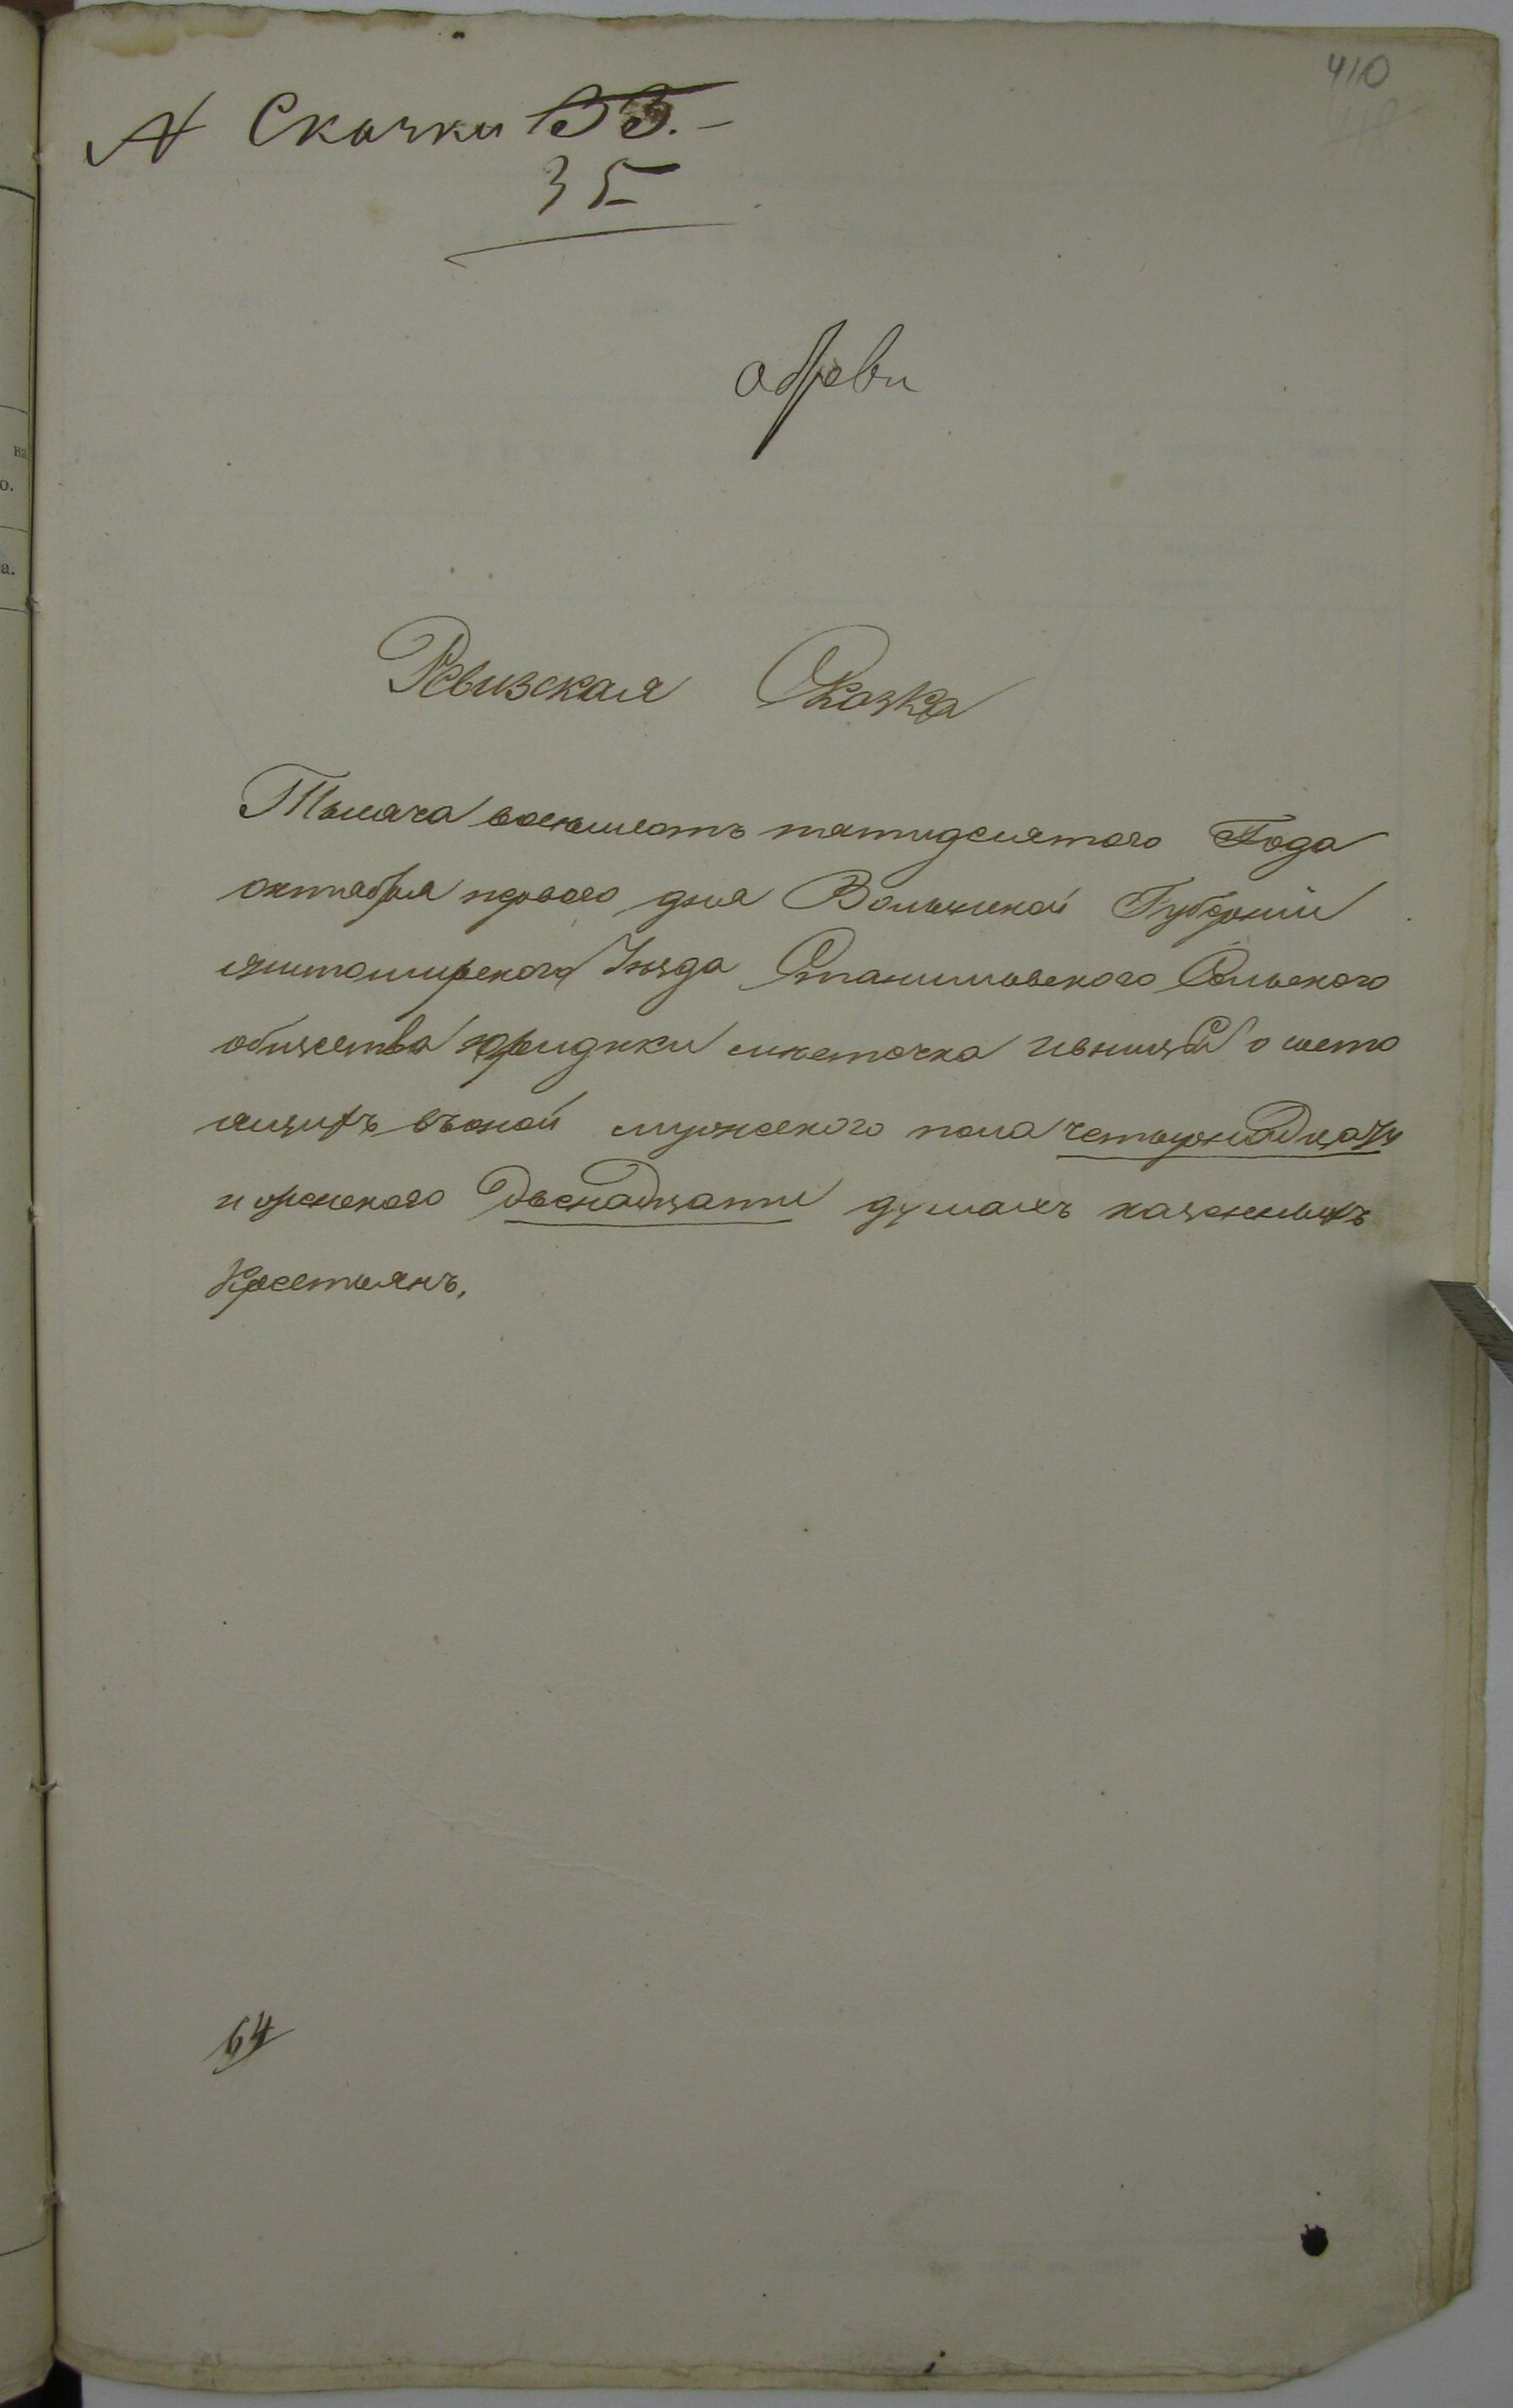 410
№ Сказки 33.
35
Ревизская Сказка
Тысяча восемьсотъ пятидесятого Года
октября первого дня Волынской Губернии
житомирского Уезда Станишовского Сельского
общества корчмы местечка Ивницы о состо
ящихъ въоной мужеского пола четырнадцати
и женского Двенадцати душахъ казенныхъ
Крестьянъ.
64
на
о.
а.